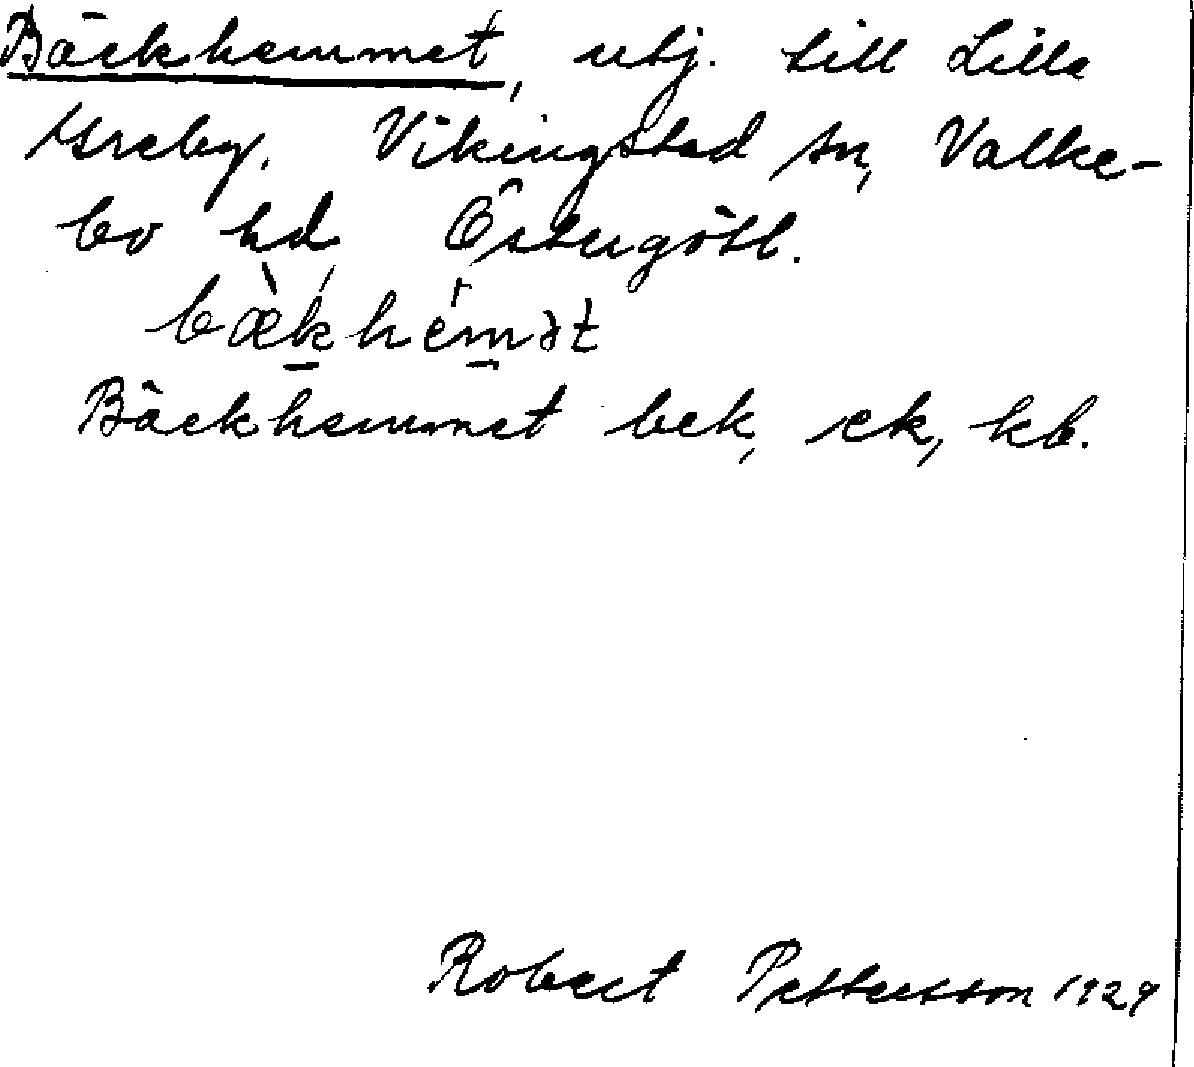 Bäckhemmet, utj. till Lilla
Greby, Vikingstad sn, Valke-
bo hd, Östergötl.
bæ̀k̠hém̠ət
Bäckhemmet bek, ek, kb.
Robert Pettersson 1929